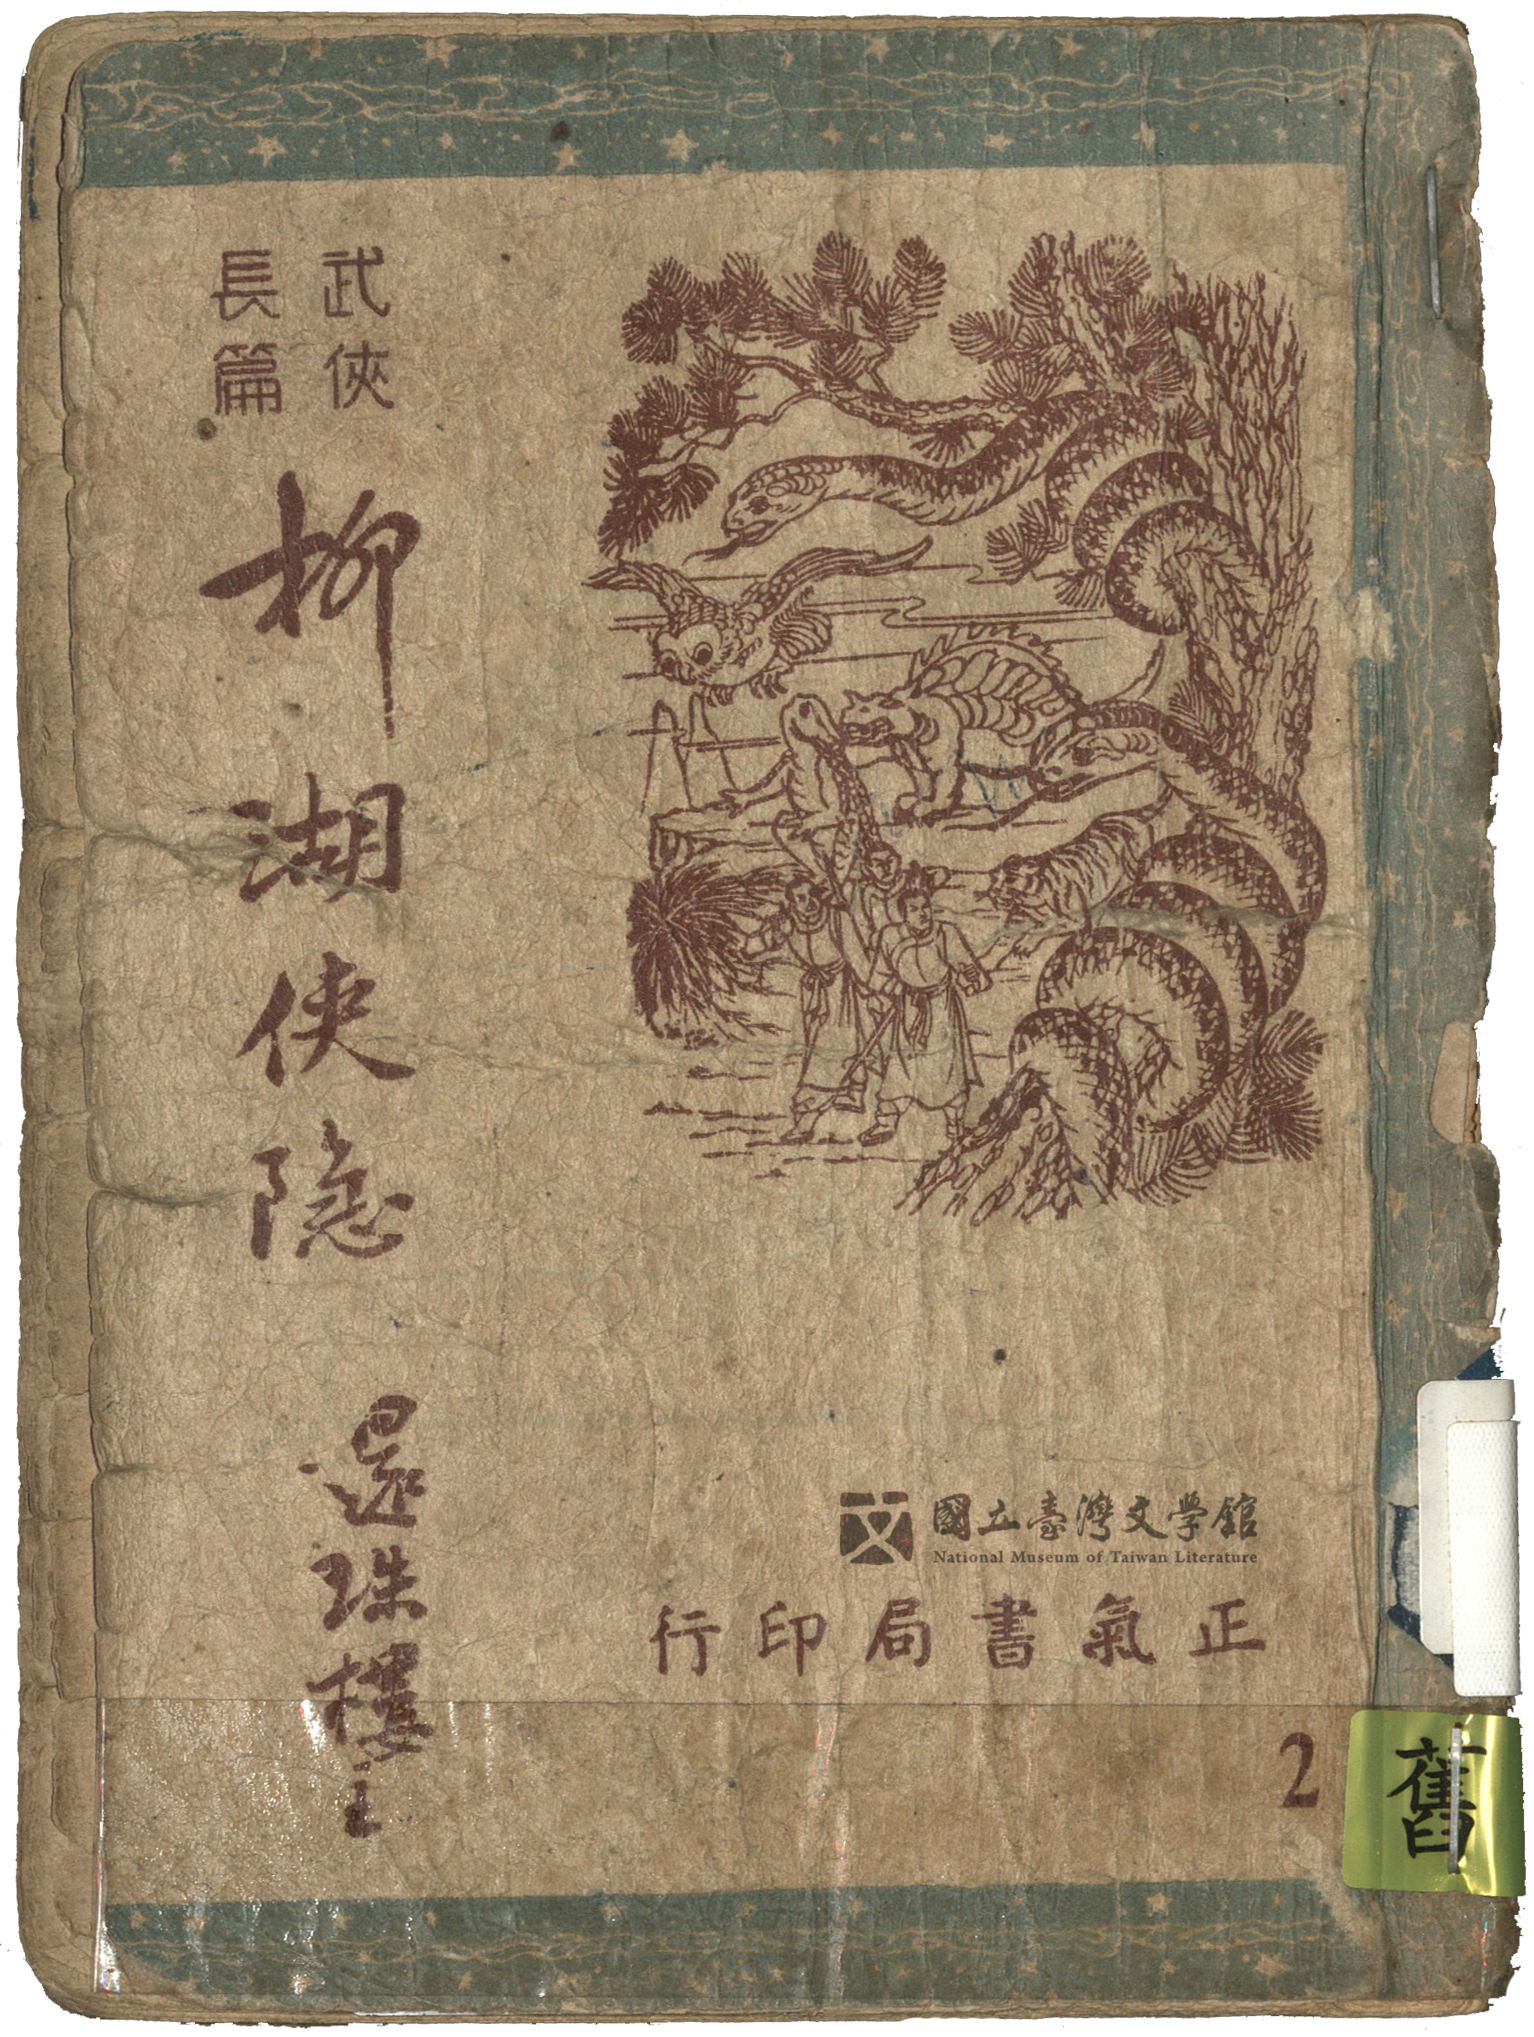 武俠
長篇
柳湖俠隐
還珠樓主
國立臺灣文學館
National Museum of Taiwan Literature
正氣書局印行
2
舊